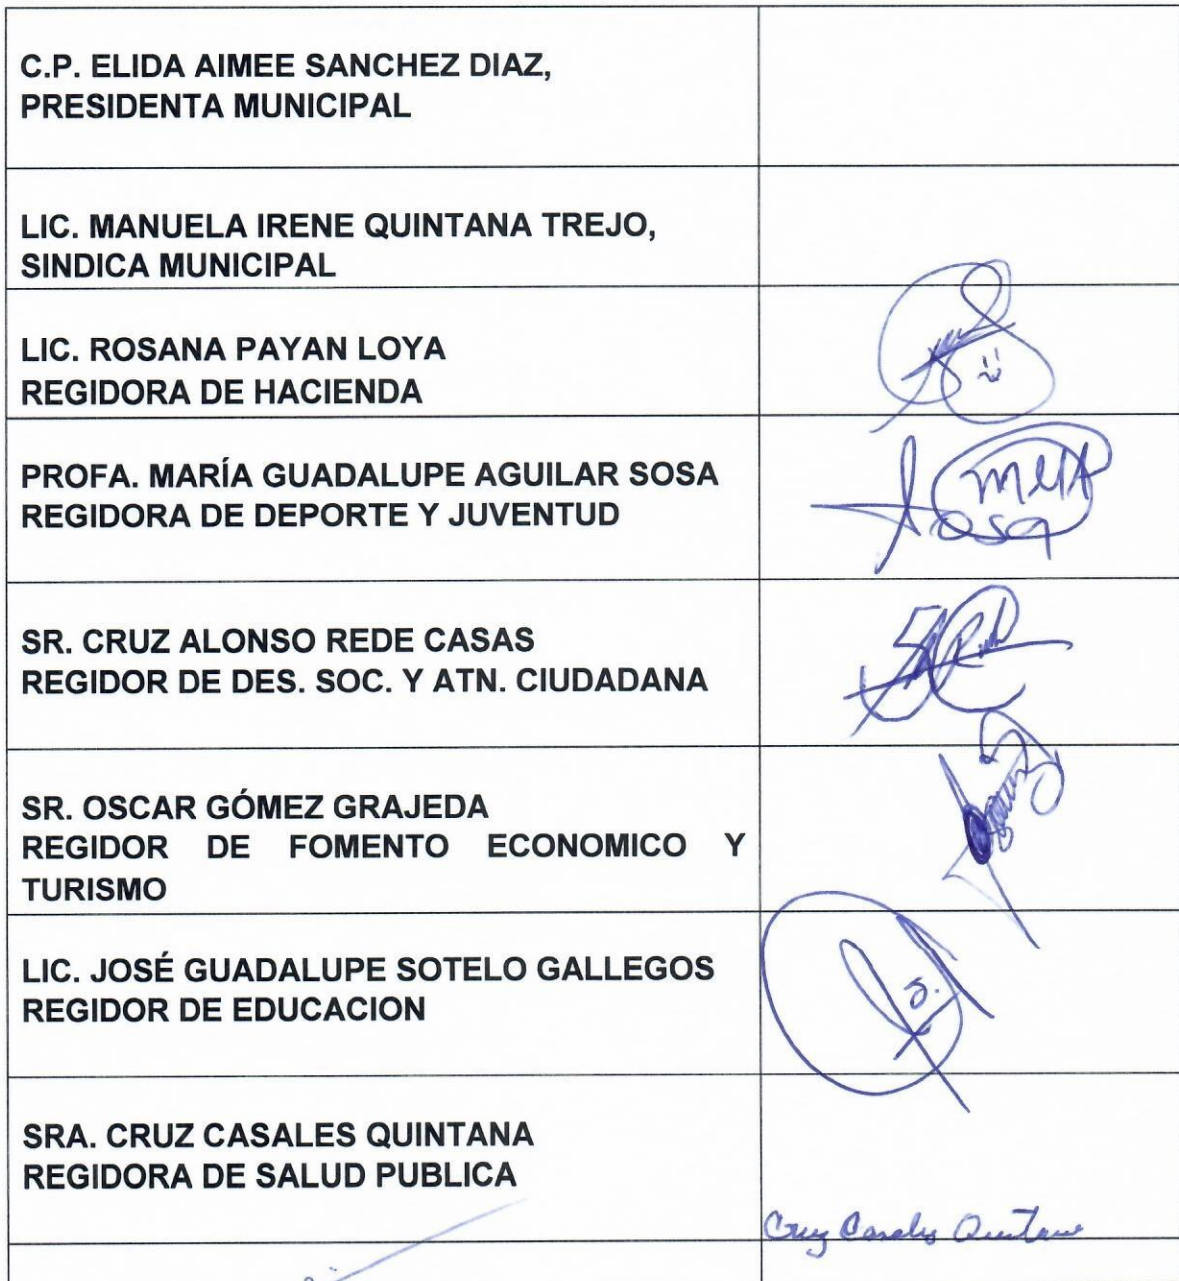 C.P. ELIDA AIMEE SANCHEZ DIAZ,
PRESIDENTA MUNICIPAL
LIC. MANUELA IRENE QUINTANA TREJO,
SINDICA MUNICIPAL
LIC. ROSANA PAYAN LOYA
REGIDORA DE HACIENDA
PROFA. MARÍA GUADALUPE AGUILAR SOSA
REGIDORA DE DEPORTE Y JUVENTUD
sosa
SR. CRUZ ALONSO REDE CASAS
REGIDOR DE DES. SOC. Y ATN. CIUDADANA
SR. OSCAR GÓMEZ GRAJEDA
REGIDOR DE FOMENTO ECONOMICO Y
TURISMO
LIC. JOSÉ GUADALUPE SOTELO GALLEGOS
REGIDOR DE EDUCACION
SRA. CRUZ CASALES QUINTANA
REGIDORA DE SALUD PUBLICA
Cruz Casales Quintana